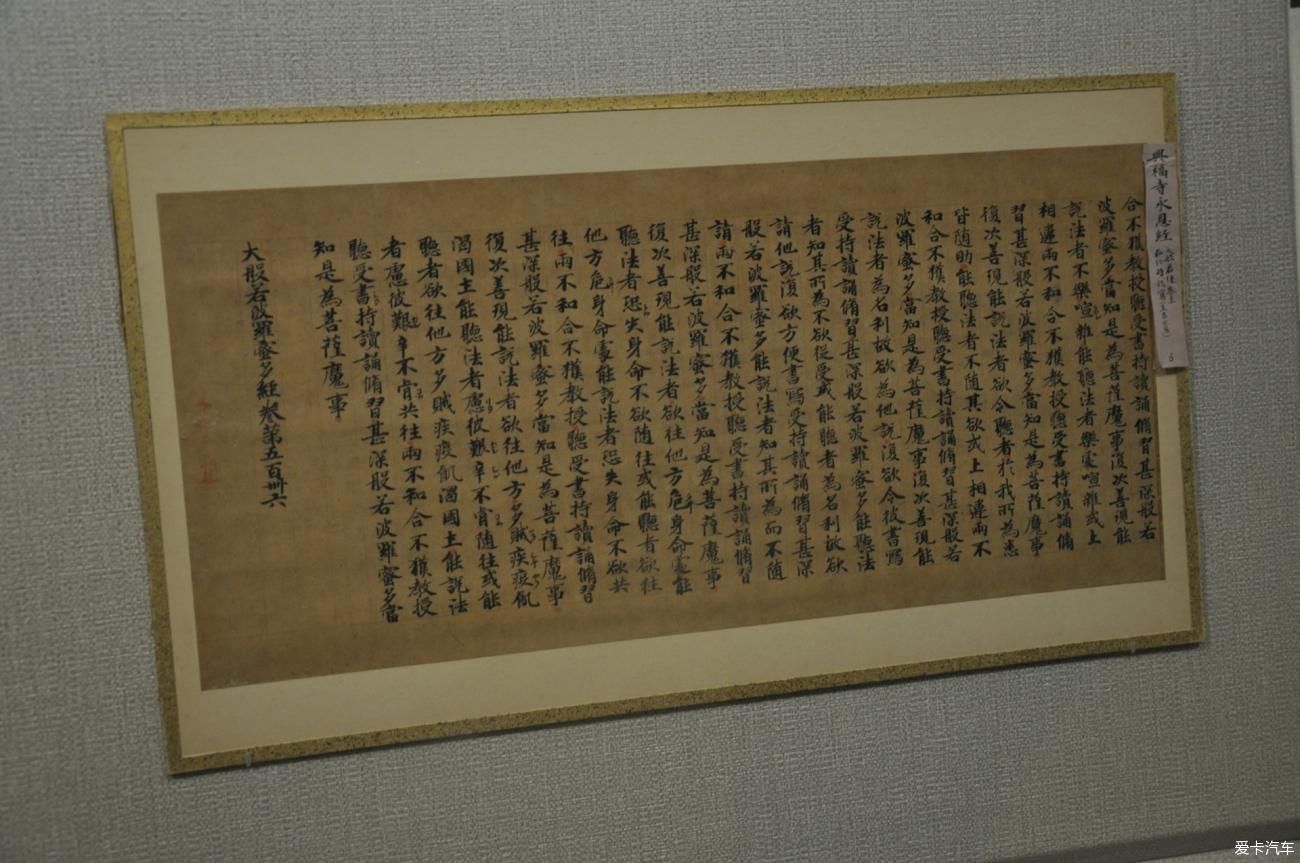 興福寺永恩経
6
合不獲教授聽受書持讀誦脩習甚深般若
波羅蜜多當知是為菩薩魔事復次善現能
說法者不樂喧雜能聽法者樂處喧雜或上
相違兩不和合不獲教授聽受書持讀誦脩
習甚深般若波羅蜜多當知是為菩薩魔事
復次善現能說法者欲令聽者於我所為悉
皆随助能聽法者不随其欲或上相違兩不
和合不獲教授聽受書持讀誦脩習甚深般若
波羅蜜多當知是為菩薩魔事復次善現能
說法者為名利故欲為他說復欲令彼書寫
受持讀誦脩習甚深般若波羅蜜多能聽法
者知其所為不欲從受或能聽者為名利故欲
請他說復欲方便書寫受持讀誦脩習甚深
般若波羅蜜多能說法者知其所為而不随
請兩不和合不獲教授聽受書持讀誦脩習
甚深般若波羅蜜多當知是為菩薩魔事
復次善現能說法者欲往他方危身命處能
聽法者恐失身命不欲随往或能聽者欲往
他方危身命處能說法者恐失身命不欲共
往兩不和合不獲教授聽受書持讀誦脩習
甚深般若波羅蜜多當知是為菩薩魔事
復次善現能說法者欲往他方多賊疾疫飢
渴國土能聽法者慮彼艱辛不肯随往或能
聽者欲往他方多賊疾疫飢渴國土能說法
者慮彼艱辛不肯共往兩不和合不獲教授
聽受書持讀誦脩習甚深般若波羅蜜多當
知是為菩薩魔事
大般若波羅蜜多經卷第五百卌六
爱卡汽车